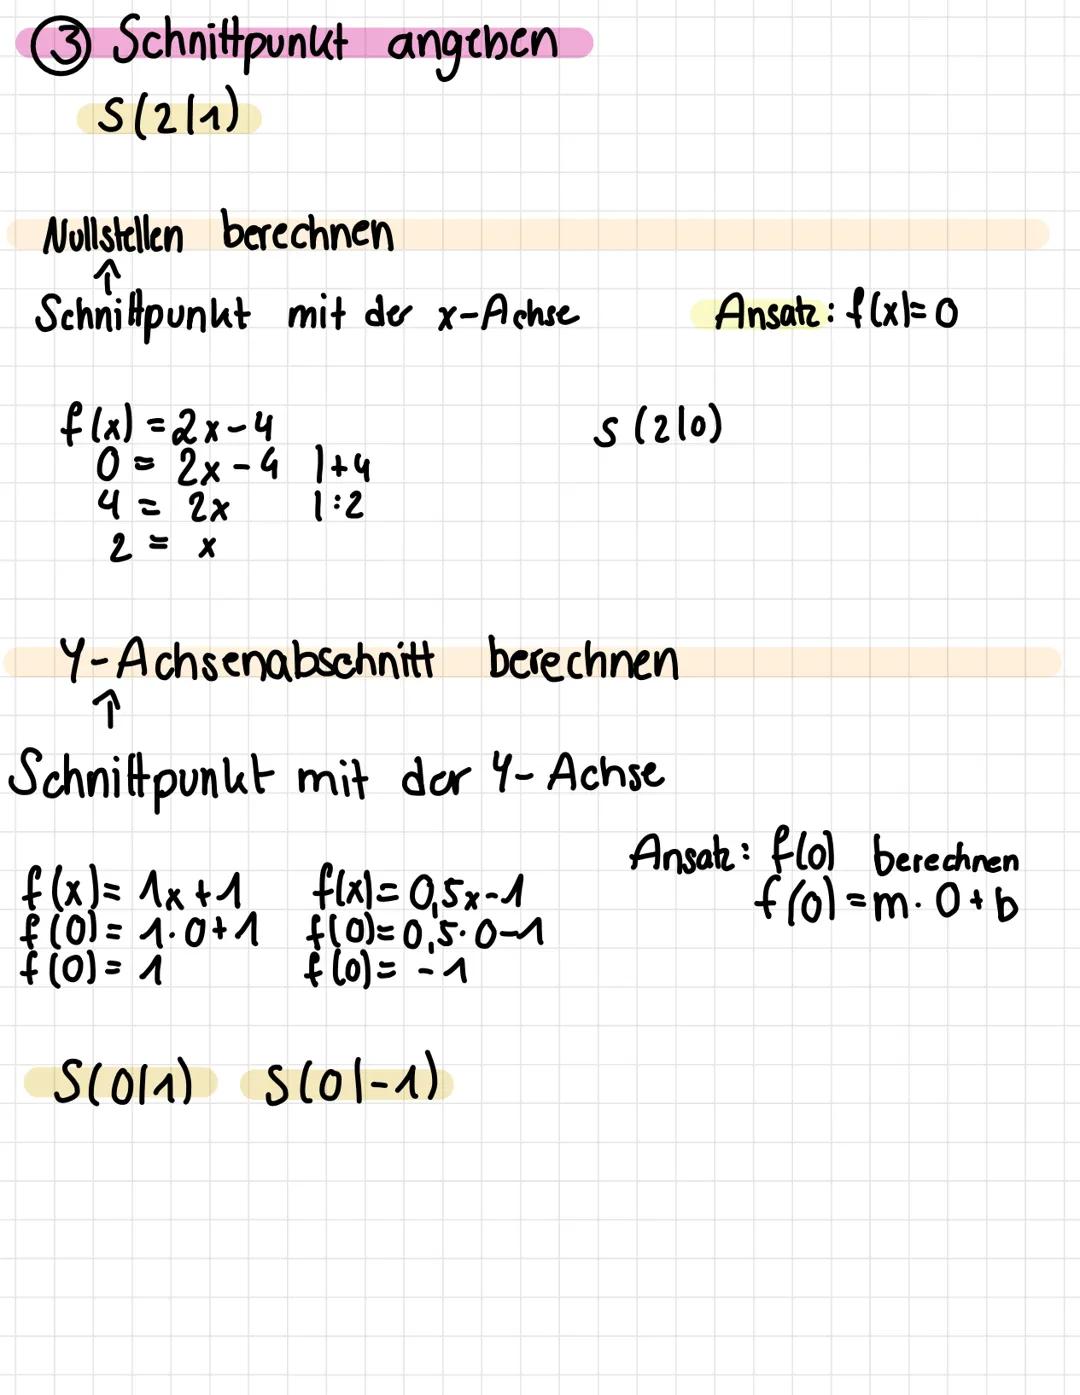 ③ Schnittpunkt angeben
S(2|1)
Nullstellen berechnen
↑
Schnittpunkt mit der x-Achse
Ansatz: f(x)=0
f(x) = 2x-4
S (2|0)
0 = 2x-4 |+4
4 = 2x |:2
2 = x
Y-Achsenabschnitt berechnen
↑
Schnittpunkt mit der Y-Achse
Ansatz: f(0) berechnen
f(0) = m·0+b
f(x)= 1x+1 f(x)= 0,5x-1
f(0)= 1·0+1 f(0)= 0,5·0-1
f(0)= 1 f(0)= -1
S(0|1) S(0|-1)